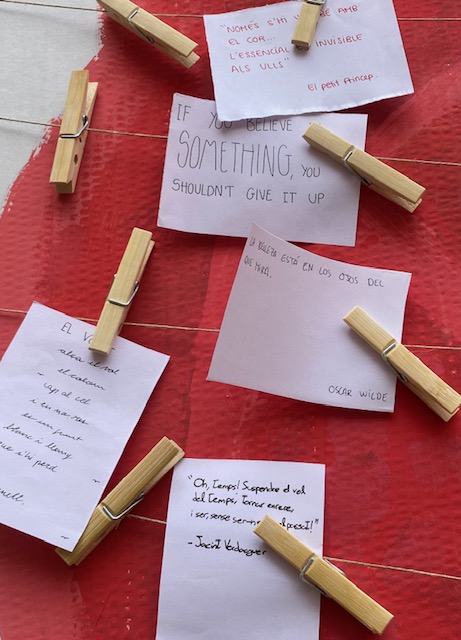 "NOMÉS S'HI AMB
EL COR...
L'ESSENCIAL INVISIBLE
ALS ULLS"
El petit Príncep.
IF YOU BELIEVE
SOMETHING, YOU
SHOULDN'T GIVE IT UP
LA BELLEZA ESTÁ EN LOS OJOS DEL
QUE MIRA.
OSCAR WILDE
EL
alça el vol
el colom
cap al cel
i tu no
és un punt
blanc i lluny
que s'hi perd
"Oh, Temps! Suspendre el vol
del Temps, Tornar enrere,
i ser, sense ser
- Jacint Verdaguer